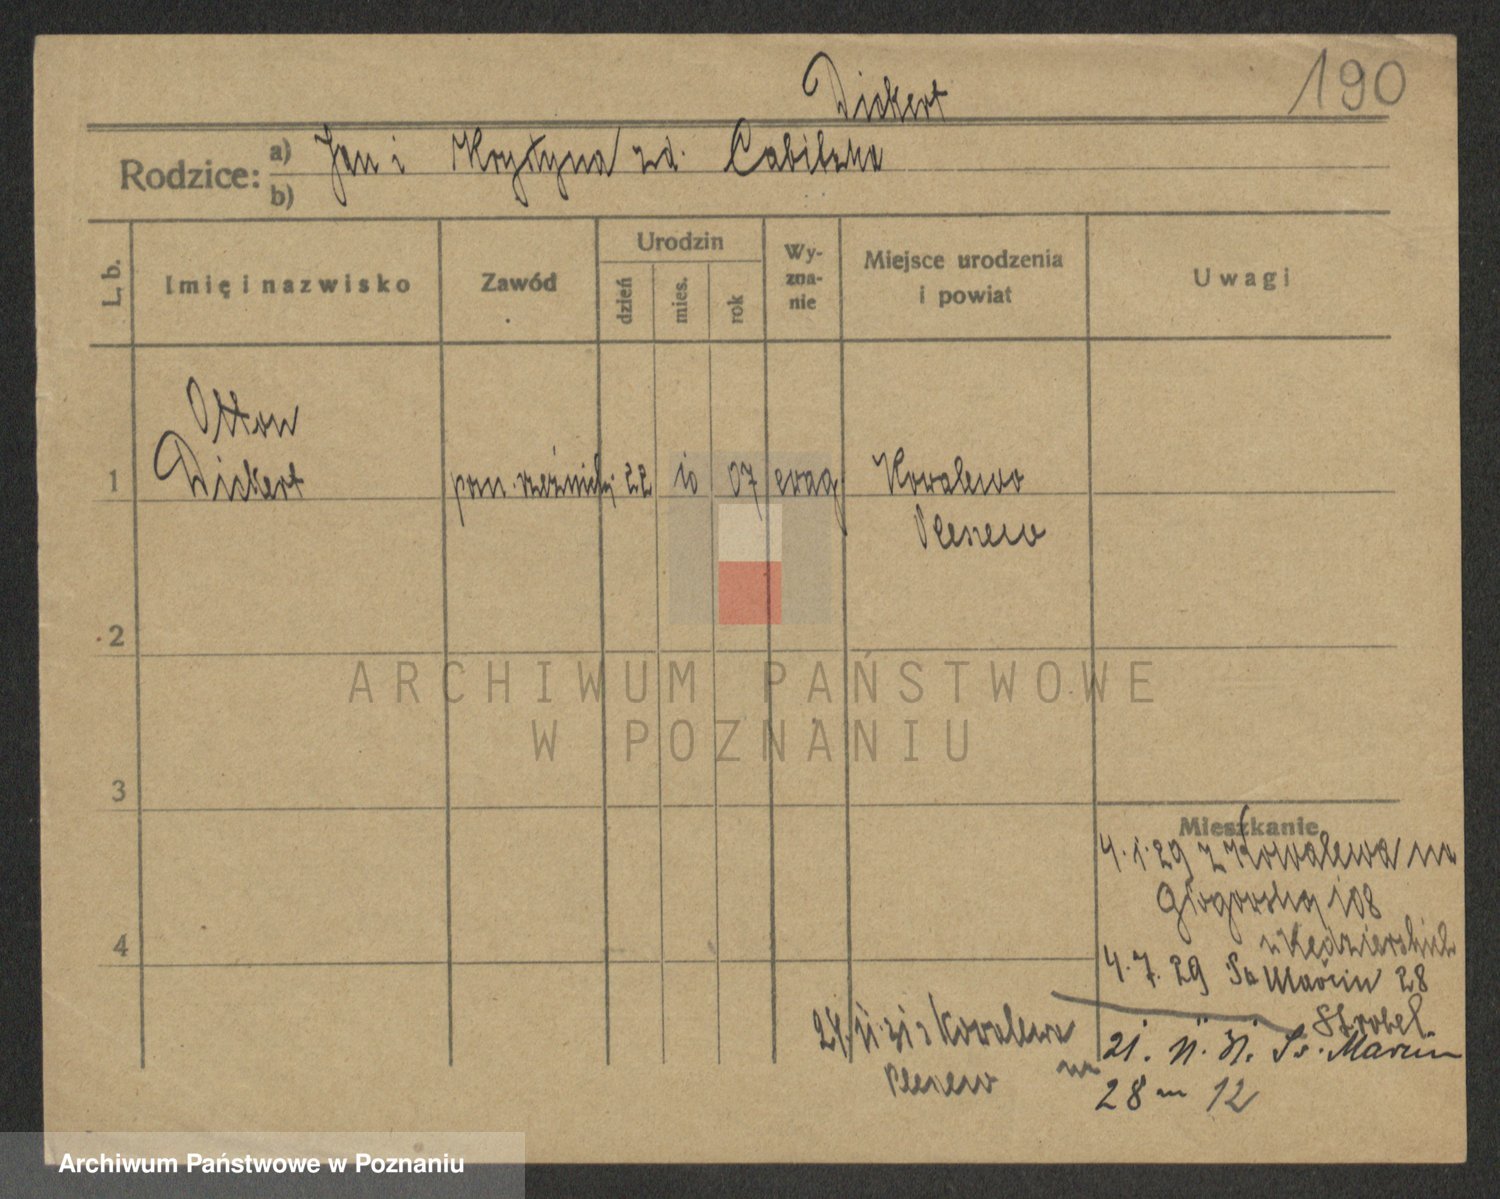 190
Dickert
Rodzice: a) Jan i Krystyna zd.
b)
L. b. Imię i nazwisko Zawód Urodzin dzień mies. rok Wy-zna-nie Miejsce urodzenia i powiat Uwagi
Otton
1 Dickert pom. rzeźnicki 22 10 07 ewag Kowalewo
Pleszew
2
ARCHIWUM PAŃSTWOWE
W POZNANIU
3
Mieszkanie
4.1.29 z Kowalewa na
Głogowską 108
4
4.7.29 Św Marcin 28
Strobel
24.11.31 z Kowalewa
Pleszew na
21. 11. 31. Św. Marcin
28 m 12
Archiwum Państwowe w Poznaniu